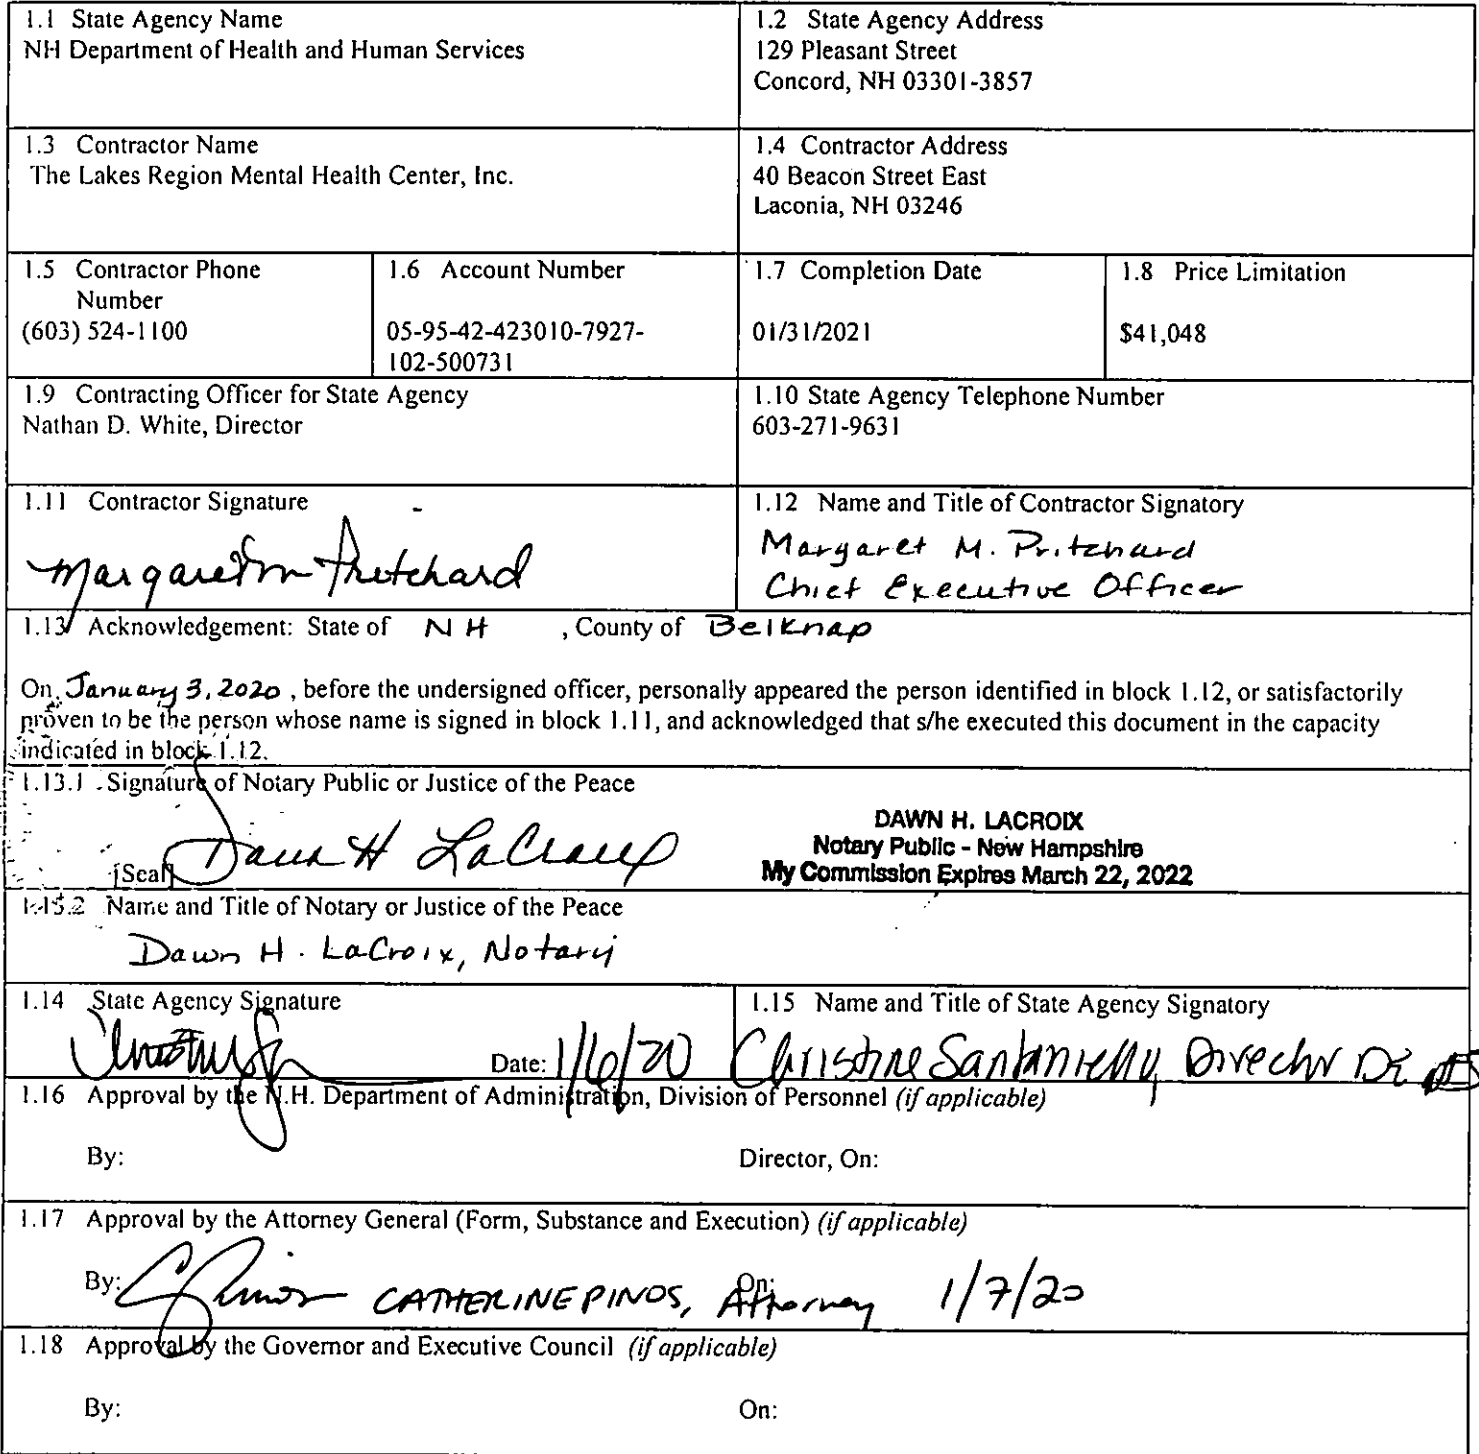 1.1 State Agency Name
NH Department of Health and Human Services
1.2 State Agency Address
129 Pleasant Street
Concord, NH 03301-3857
1.3 Contractor Name
The Lakes Region Mental Health Center, Inc.
1.4 Contractor Address
40 Beacon Street East
Laconia, NH 03246
1.5 Contractor Phone
Number
(603) 524-1100
1.6 Account Number
05-95-42-423010-7927-
102-500731
1.7 Completion Date
01/31/2021
1.8 Price Limitation
$41,048
1.9 Contracting Officer for State Agency
Nathan D. White, Director
1.10 State Agency Telephone Number
603-271-9631
1.11 Contractor Signature
Margaret M Pritchard
1.12 Name and Title of Contractor Signatory
Margaret M. Pritchard
Chief Executive Officer
1.13 Acknowledgement: State of NH , County of Belknap
On January 3, 2020, before the undersigned officer, personally appeared the person identified in block 1.12, or satisfactorily
proven to be the person whose name is signed in block 1.11, and acknowledged that s/he executed this document in the capacity
indicated in block 1.12.
1.13.1 Signature of Notary Public or Justice of the Peace
Dawn H LaCroix
[Seal]
DAWN H. LACROIX
Notary Public - New Hampshire
My Commission Expires March 22, 2022
1.13.2 Name and Title of Notary or Justice of the Peace
Dawn H. LaCroix, Notary
1.14 State Agency Signature
Date: 1/6/20
1.15 Name and Title of State Agency Signatory
Christine Santaniello, Director
1.16 Approval by the N.H. Department of Administration, Division of Personnel (if applicable)
By:
Director, On:
1.17 Approval by the Attorney General (Form, Substance and Execution) (if applicable)
By: CATHERINE PINOS, Attorney On: 1/7/20
1.18 Approval by the Governor and Executive Council (if applicable)
By:
On: